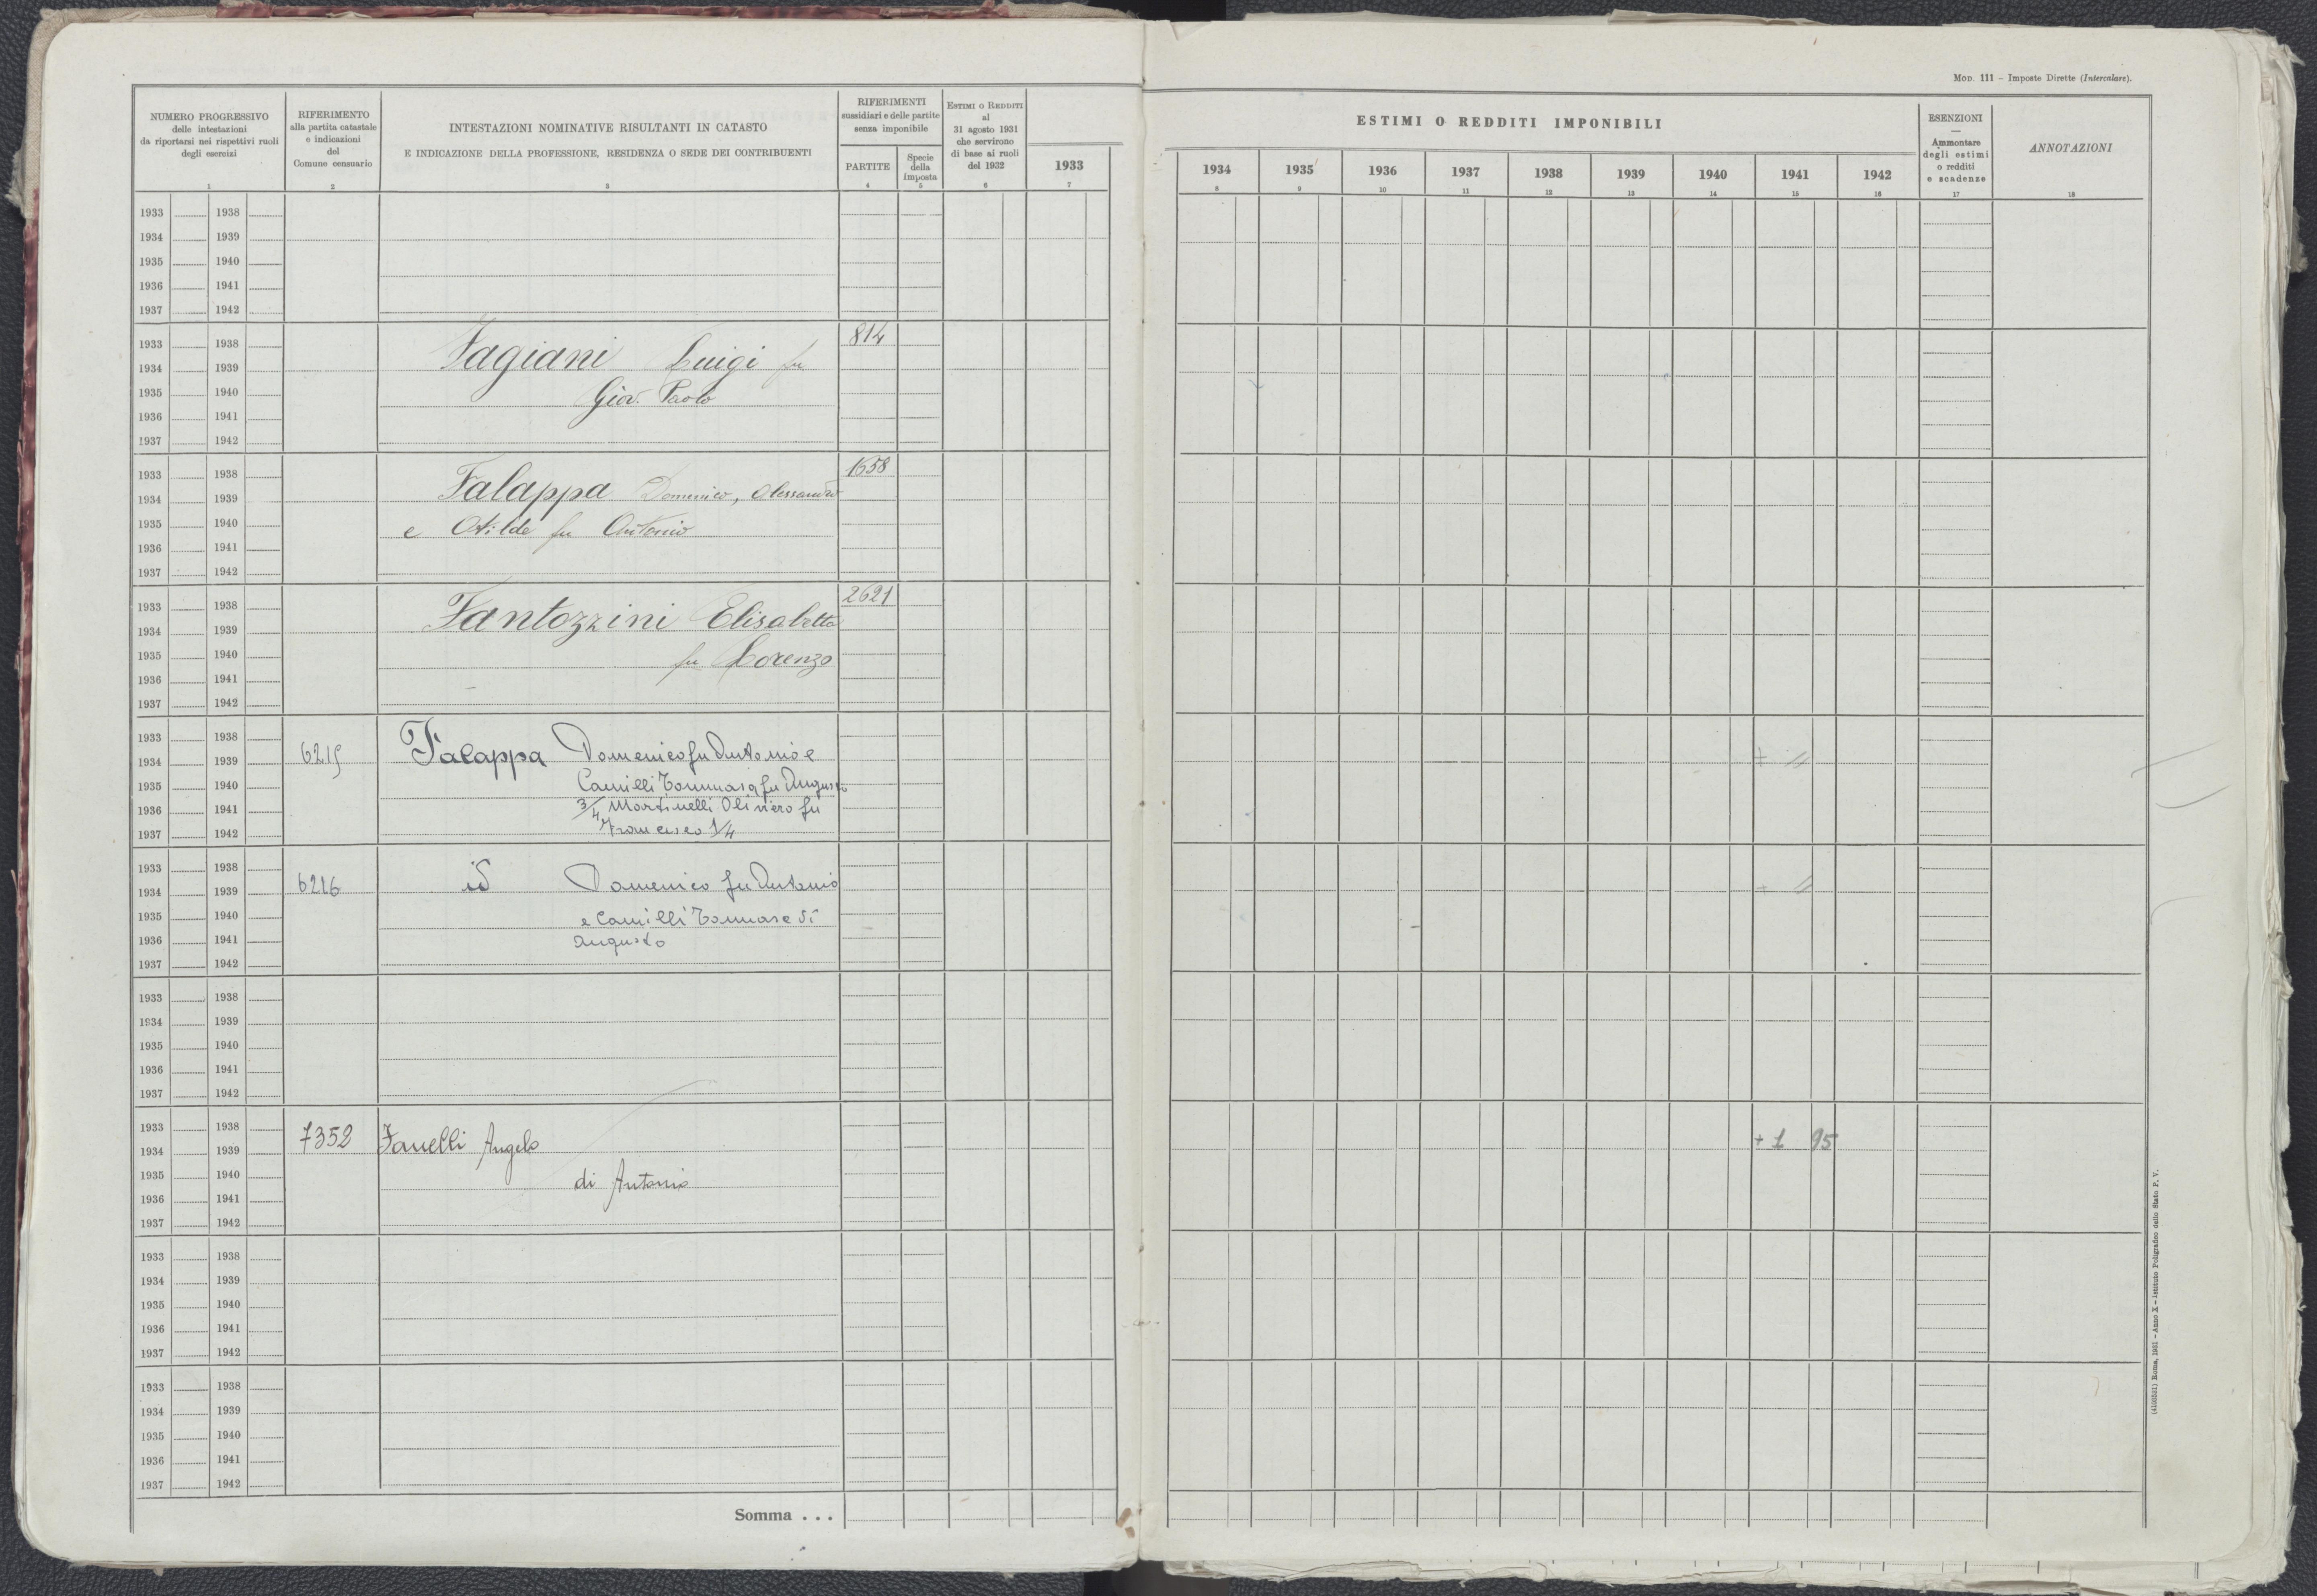 MOD. 111 – Imposte Dirette (Intercalare).
NUMERO PROGRESSIVO
delle intestazioni
da riportarsi nei rispettivi ruoli
degli esercizi
1
RIFERIMENTO
alla partita catastale
e indicazioni
del
Comune censuario
2
INTESTAZIONI NOMINATIVE RISULTANTI IN CATASTO
E INDICAZIONE DELLA PROFESSIONE, RESIDENZA O SEDE DEI CONTRIBUENTI
3
RIFERIMENTI
sussidiari e delle partite
senza imponibile
PARTITE
4
Specie
della
imposta
5
ESTIMI O REDDITI
al
31 agosto 1931
che servirono
di base ai ruoli
del 1932
6
1933
7
ESTIMI O REDDITI IMPONIBILI
1934 1935 1936 1937 1938 1939 1940 1941 1942
8 9 10 11 12 13 14 15 16
ESENZIONI
—
Ammontare
degli estimi
o redditi
e scadenze
17
ANNOTAZIONI
18
1933 1938
1934 1939
1935 1940
1936 1941
1937 1942
1933 1938 814
1934 1939 Fagiani Luigi fu
1935 1940 Giov. Paolo
1936 1941
1937 1942
1933 1938 1658
1934 1939 Falappa Domenico, Alessandro
1935 1940 e Otilde fu Antonio
1936 1941
1937 1942
1933 1938 2621
1934 1939 Fantozzini Elisabetta
1935 1940 fu Lorenzo
1936 1941
1937 1942
1933 1938
1934 1939 6215 Falappa Domenico fu Antonio e
1935 1940 Camilli Tommaso fu Augusto
1936 1941 3/4 Martinelli Oliviero fu
1937 1942 Francesco 1/4
1933 1938
1934 1939 6216 id Domenico fu Antonio
1935 1940 e Camilli Tommaso di
1936 1941 Augusto
1937 1942
1933 1938
1934 1939
1935 1940
1936 1941
1937 1942
1933 1938
1934 1939 7352 Fanelli Angelo + 1 95
1935 1940 di Antonio
1936 1941
1937 1942
1933 1938
1934 1939
1935 1940
1936 1941
1937 1942
1933 1938
1934 1939
1935 1940
1936 1941
1937 1942
Somma . . .
Roma, 1931 – Anno X – Istituto Poligrafico dello Stato P. V.